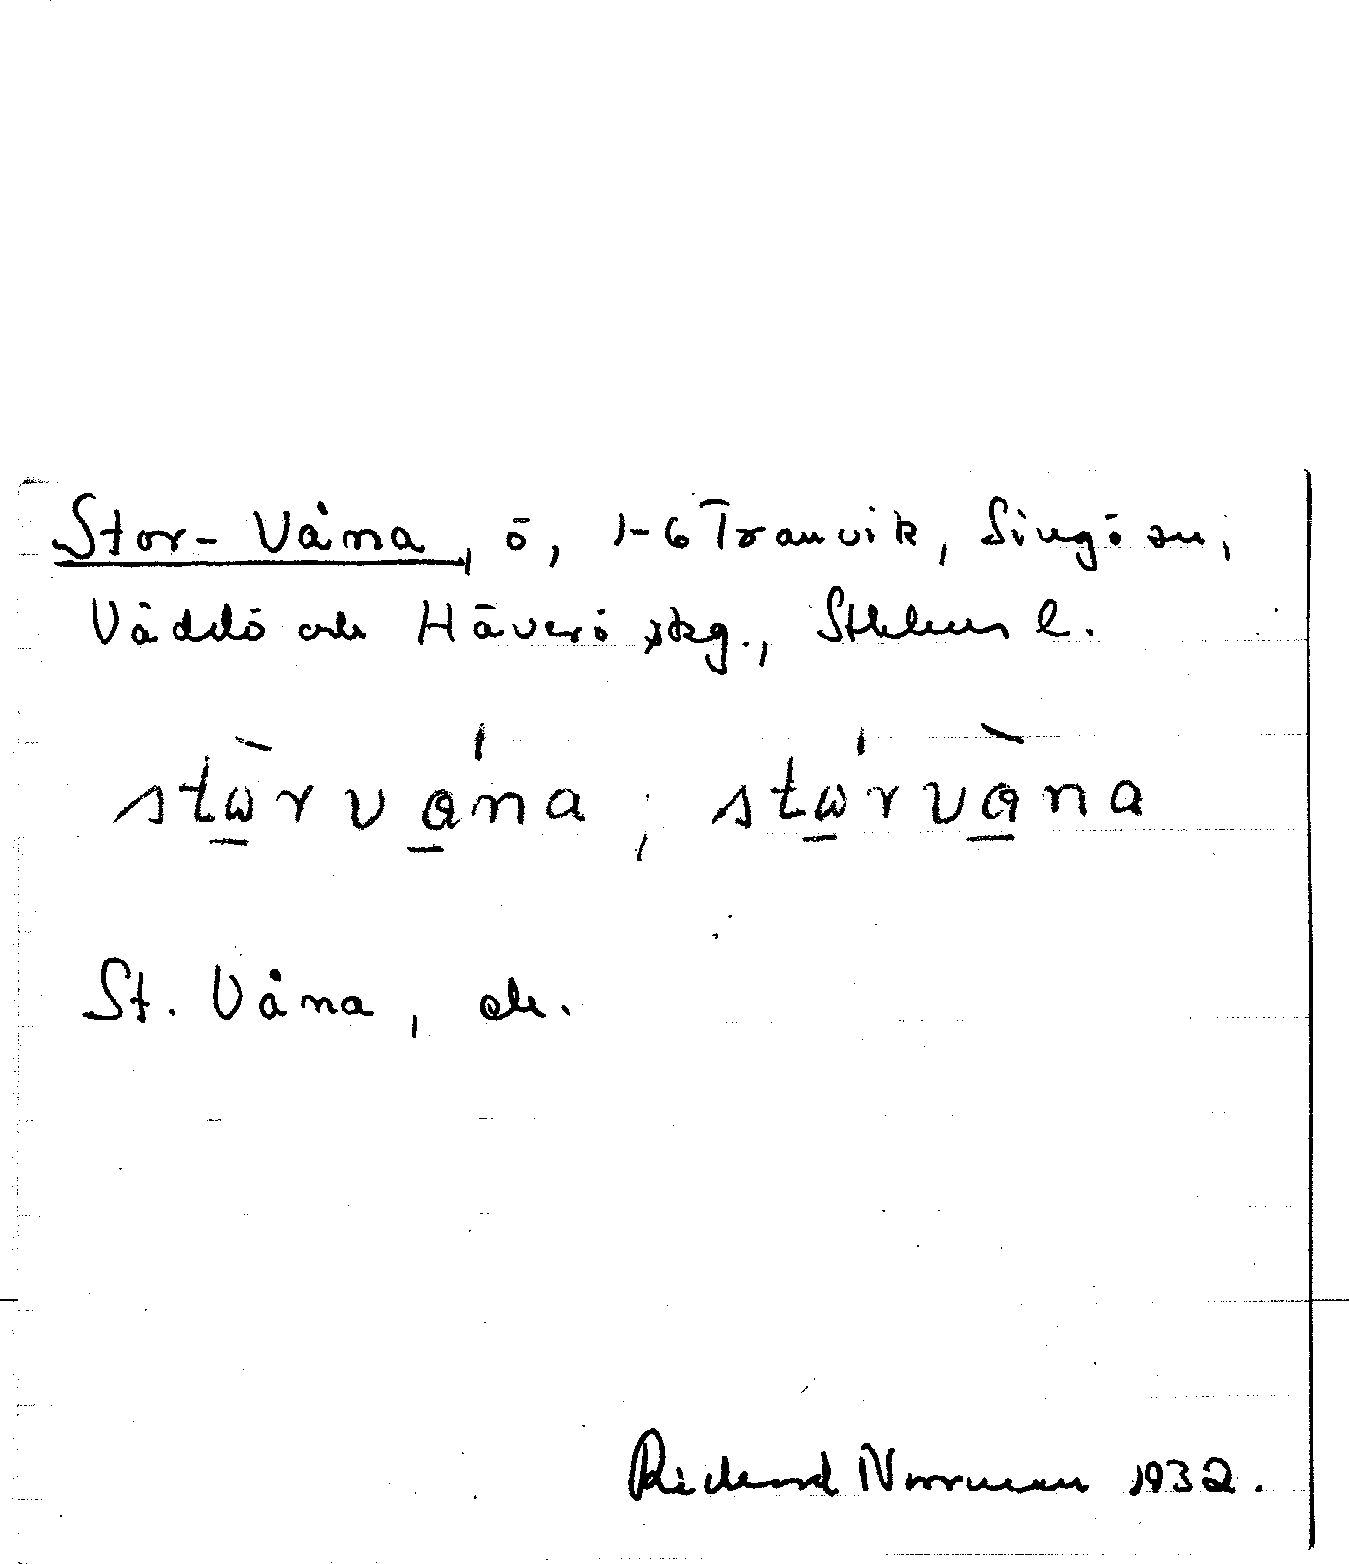 Stor-Våna, ö, 1-6 Tranvik, Singö sn,
Väddö och Häverö skg., Sthlms l.
stὼrvána, stώrvàna
St. Våna, ek.
Richard Norrman 1932.